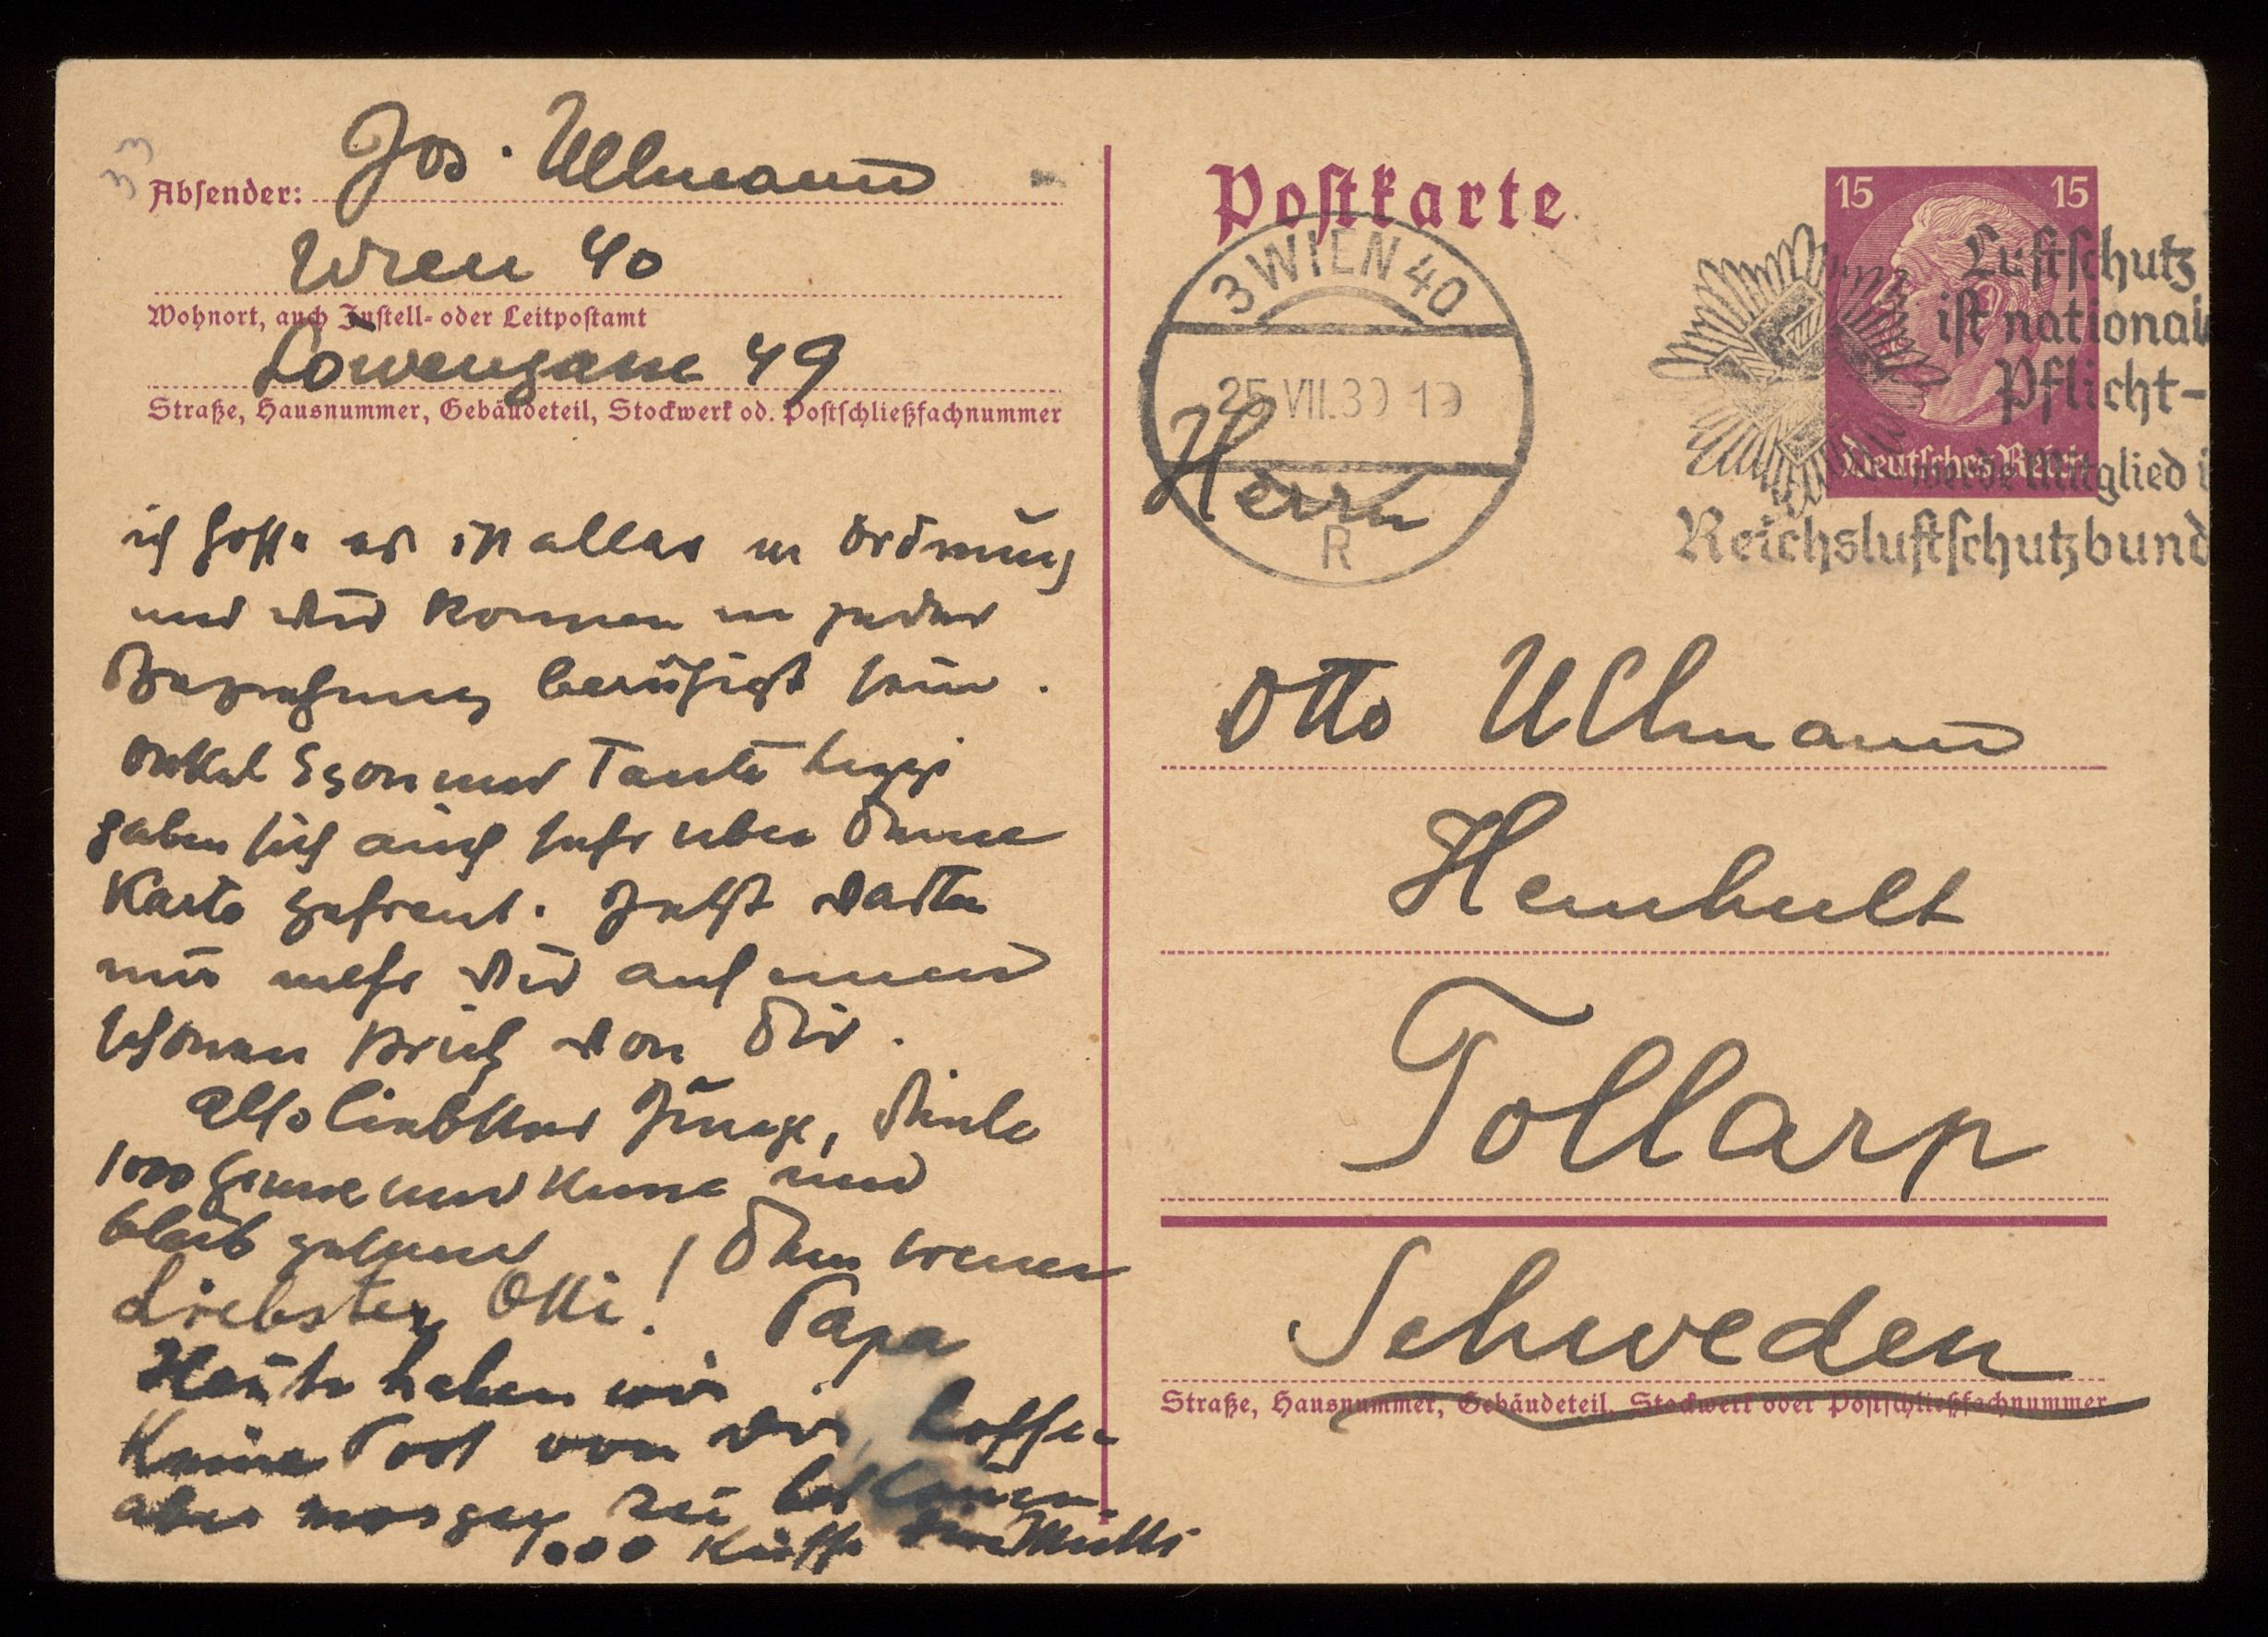 33
Absender: Jos. Ullmann
Wien 40
Wohnort, auch Zustell- oder Leitpostamt
Löwengasse 49
Straße, Hausnummer, Gebäudeteil, Stockwerk od. Postschließfachnummer
ich hoffe es ist alles in Ordnung
und wir können in jeder
Beziehung beruhigt sein.
Onkel Egon und Tante
haben sich auch sehr über Deine
Karte gefreut. Jetzt warten
nur mehr wir auf einen
schönen Brief von Dir.
Also liebster Junge, viele
1000 Grüsse und Küsse und
bleib gesund! Dein treuer
Papa
Liebster Otti!
Heute haben wir
keine Post von Dir, hoffen
aber morgen zu bekommen.
1000 Küsse Deine Mutti
Postkarte
3 WIEN 40
25.VII.39 19
R
15 15
Deutsches Reich
Luftschutz
ist national
Pflicht-
werde Mitglied i
Reichsluftschutzbund
Herrn
Otto Ullmann
Hemhult
Tollarp
Schweden
Straße, Hausnummer, Gebäudeteil, Stockwerk oder Postschließfachnummer